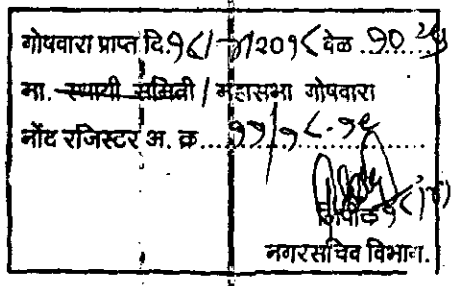 गोषवारा प्राप्त दि.१८/ /२०१८ वेळ १०
मा. स्थायी समिती / महासभा गोषवारा
नोंद रजिस्टर अ. क्र....११/१८-१९
लिपीक
नगरसचिव विभाग.